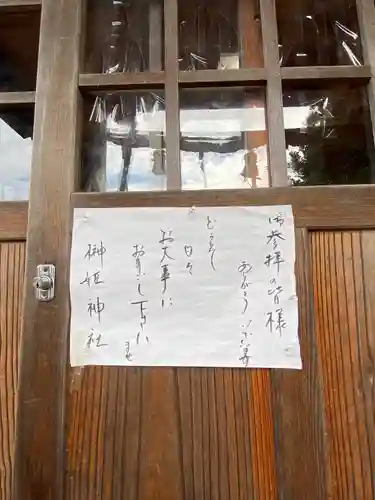 御参拝の皆様
ありがとうございます
どうぞ
日々
お大事に
お過し下さい
ませ
榊姫神社